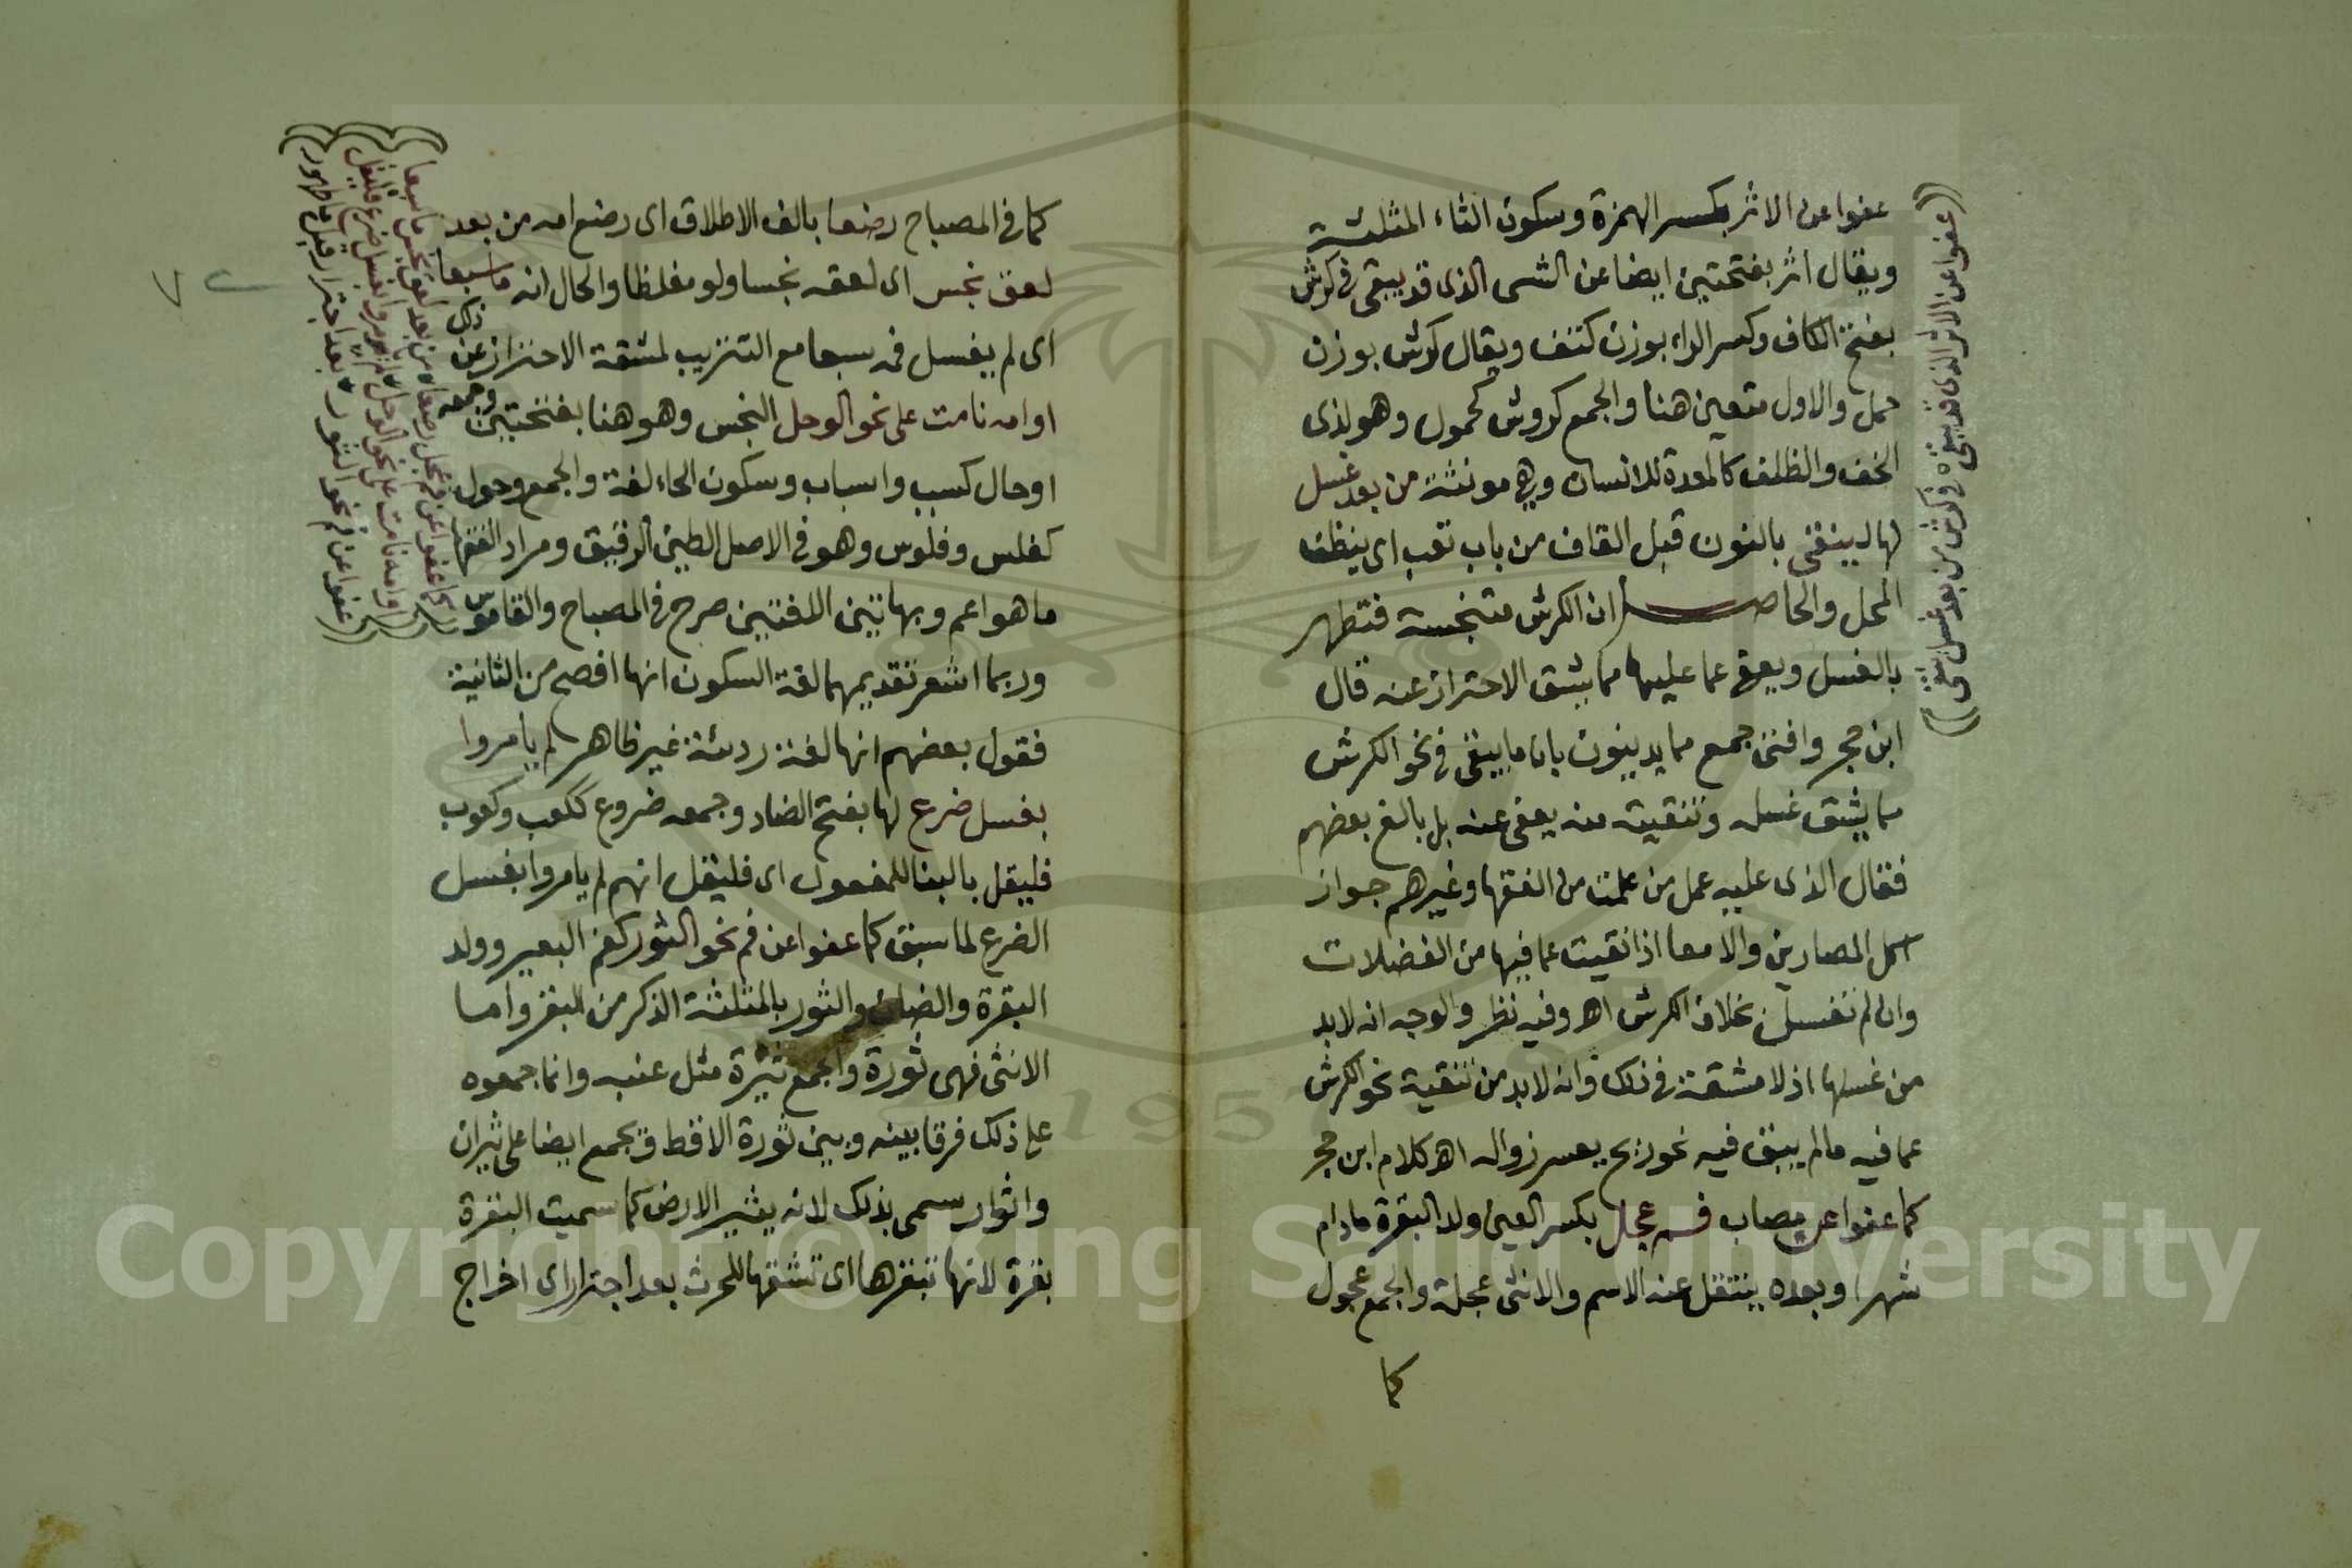 عفوا عن الاثر بكسر الهمزة وسكون الثاء المثلثة
ويقال اثر بفتحتين ايضا عن الشى الذى قد يبقى فى كرش
بفتح الكاف وكسر الراء بوزن كتف ويقال كرش بوزن
حمل والاول متعين هنا والجمع كروش كحمول وهو لذى
الخف والظلف كالمعدة للانسان وهى مونثة من بعد غسل
لها لينقى بالنون قبل القاف من باب تعب اى ينظف
المحل والحاصل ان الكرش متنجسة فتطهر
بالغسل ويعفى عما عليها مما يشق الاحتراز عنه قال
ابن حجر وافتى جمع ممايدينون بان ما يبقى فى نحو الكرش
مما يشق غسله وتنقيته منه يعفى عنه بل بالغ بعضهم
فقال الذى عليه عمل من علمت من الفقها وغيرهم جواز
اكل المصارين والامعا اذا نقيت عما فيها من الفضلات
وان لم تغسل بخلاف الكرش اه وفيه نظر والوجه انه لابد
من غسلها اذ لا مشقة فى ذلك وانه لابد من تنقية نحو الكرش
عما فيه مالم يبق فيه نحو ريح يعسر زواله اه كلام ابن حجر
كما عفوا عن مصاب فم عجل بكسر العين ولد البقرة مادام
شهرا وبعده ينتقل عنه الاسم والانثى عجلة والجمع عجول
كما
عفوا عن الاثر الذى قد يبقى فى كرش من بعد غسل نقى
كما فى المصباح رضعا بالف الاطلاق اى رضع امه من بعد
لعق نجس اى لعقه نجسا ولو مغلظا والحال انه ما سبعا
اى لم يغسل فمه سبعا مع التتريب لمشقة الاحتراز عن ذلك
او امه نامت على نحو الوحل النجس وهو هنا بفتحتين وجمعه
اوحال كسبب واسباب وسكون الحاء لغة والجمع وحول
كفلس وفلوس وهو فى الاصل الطين الرقيق ومراد الفقها
ما هو اعم وبهاتين اللغتين صرح فى المصباح والقاموس
وربما اشعر تقديمهما لغة السكون انها افصح من الثانية
فقول بعضهم انها لغة رديئة غير ظاهر لم يامروا
بغسل ضرع لها بفتح الضاد وجمعه ضروع ككعب وكعوب
فليقل بالبنا للمفعول اى فليقل انهم لم يامروا بغسل
الضرع لما سبق كما عفوا عن فم نحو الثور كفم البعير وولد
البقرة والضان والثور بالمثلثة الذكر من البقر واما
الانثى فهى ثورة والجمع ثيرة مثل عنبه وانما جمعوه
على ذلك فرقا بينه وبين ثورة الاقط ويجمع ايضا على ثيران
واثوار سمى بذلك لانه يثير الارض كما سميت البقرة
بقرة لانها تبقرها اى تشقها للحرث بعد اجترار اى اخراج
كما عفوا عن فم عجل رضعا من بعد لعق نجس ما سبعا
او امه نامت على نحو الوحل لم يامروا بغسل ضرع فليقل
عفوا عن فم نحو الثور بعد اجترار قبل ما طهور